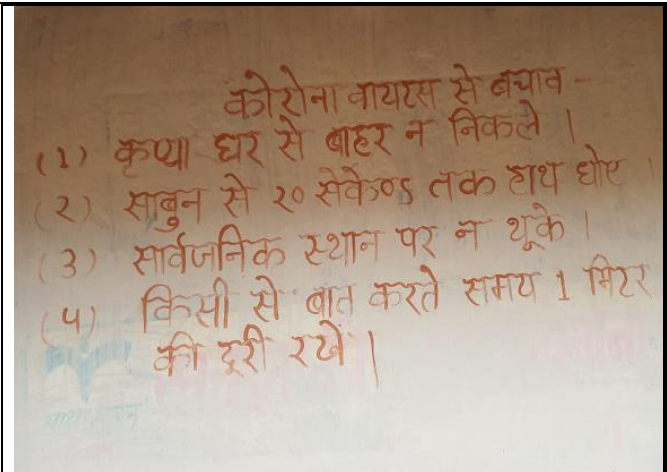 कोरोना वायरस से बचाव -
(1) कृप्या घर से बाहर न निकले ।
(२) साबुन से २० सेकेण्ड तक हाथ धोए ।
(3) सार्वजनिक स्थान पर न थूके ।
(4) किसी से बात करते समय 1 मिटर
की दूरी रखें ।